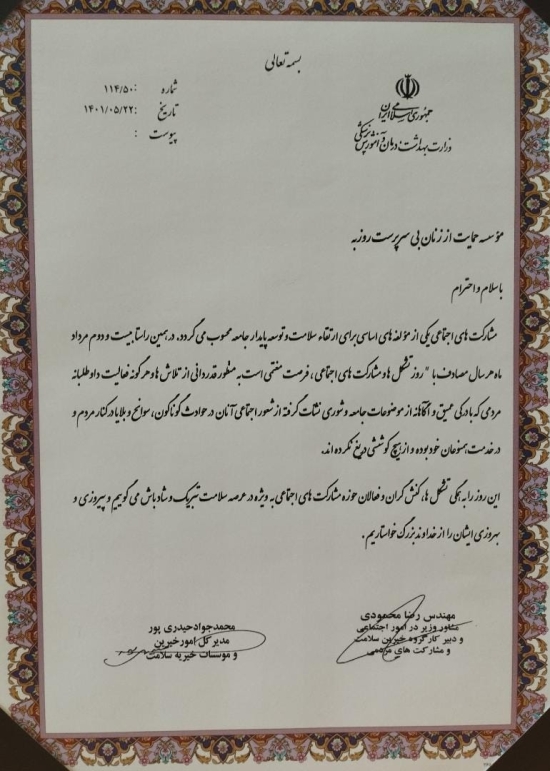 بسمه تعالی
جمهوری اسلامی ایران
وزارت بهداشت، درمان و آموزش پزشکی
شماره : ۱۱۴/۵۰
تاریخ : ۱۴۰۱/۰۵/۲۲
پیوست :
مؤسسه حمایت از زنان بی سرپرست روزبه
با سلام و احترام
مشارکت های اجتماعی یکی از مؤلفه های اساسی برای ارتقاء سلامت و توسعه پایدار جامعه محسوب می گردد. در همین راستا بیست و دوم مرداد
ماه هر سال مصادف با "روز تشکل ها و مشارکت های اجتماعی، فرصت مغتنمی است به منظور قدردانی از تلاش ها و هر گونه فعالیت داوطلبانه
مردمی که با درکی عمیق و آگاهانه از موضوعات جامعه و شوری نشات گرفته از شعور اجتماعی آنان در حوادث گوناگون، سوانح و بلایا در کنار مردم و
در خدمت همنوعان خود بوده و از هیچ کوششی دریغ نکرده اند.
این روز را به همگی تشکل ها، کنش گران و فعالان حوزه مشارکت های اجتماعی به ویژه در عرصه سلامت تبریک و شادباش می گوییم و پیروزی و
بهروزی ایشان را از خداوند بزرگ خواستاریم .
مهندس رضا محمودی
مشاور وزیر در امور اجتماعی
و دبیر کارگروه خیرین سلامت
و مشارکت های مردمی
محمدجواد حیدری پور
مدیر کل امور خیرین
و موسسات خیریه سلامت